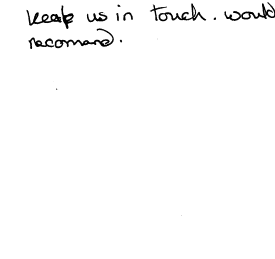 keep us in touch. would
recomand.